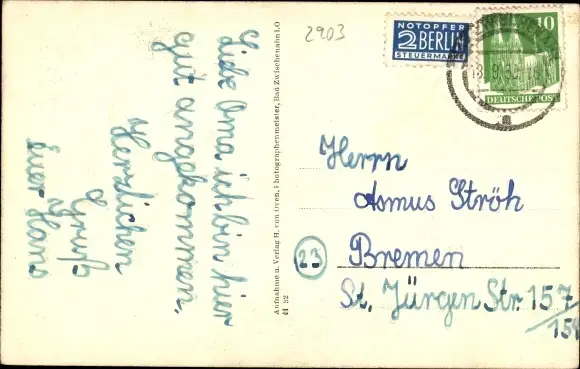 Liebe Oma ich bin hier
gut angekommen.
Herzlichen
Gruß
Euer Hans
Aufnahme u. Verlag H. von Oven, Photographenmeister, Bad Zwischenahn i.O
H 32
2903
NOTOPFER
2 BERLIN
STEUERMARKE
10
DEUTSCHE POST
Herrn
Asmus Ströh
(23) Bremen
St. Jürgen Str. 157/
158